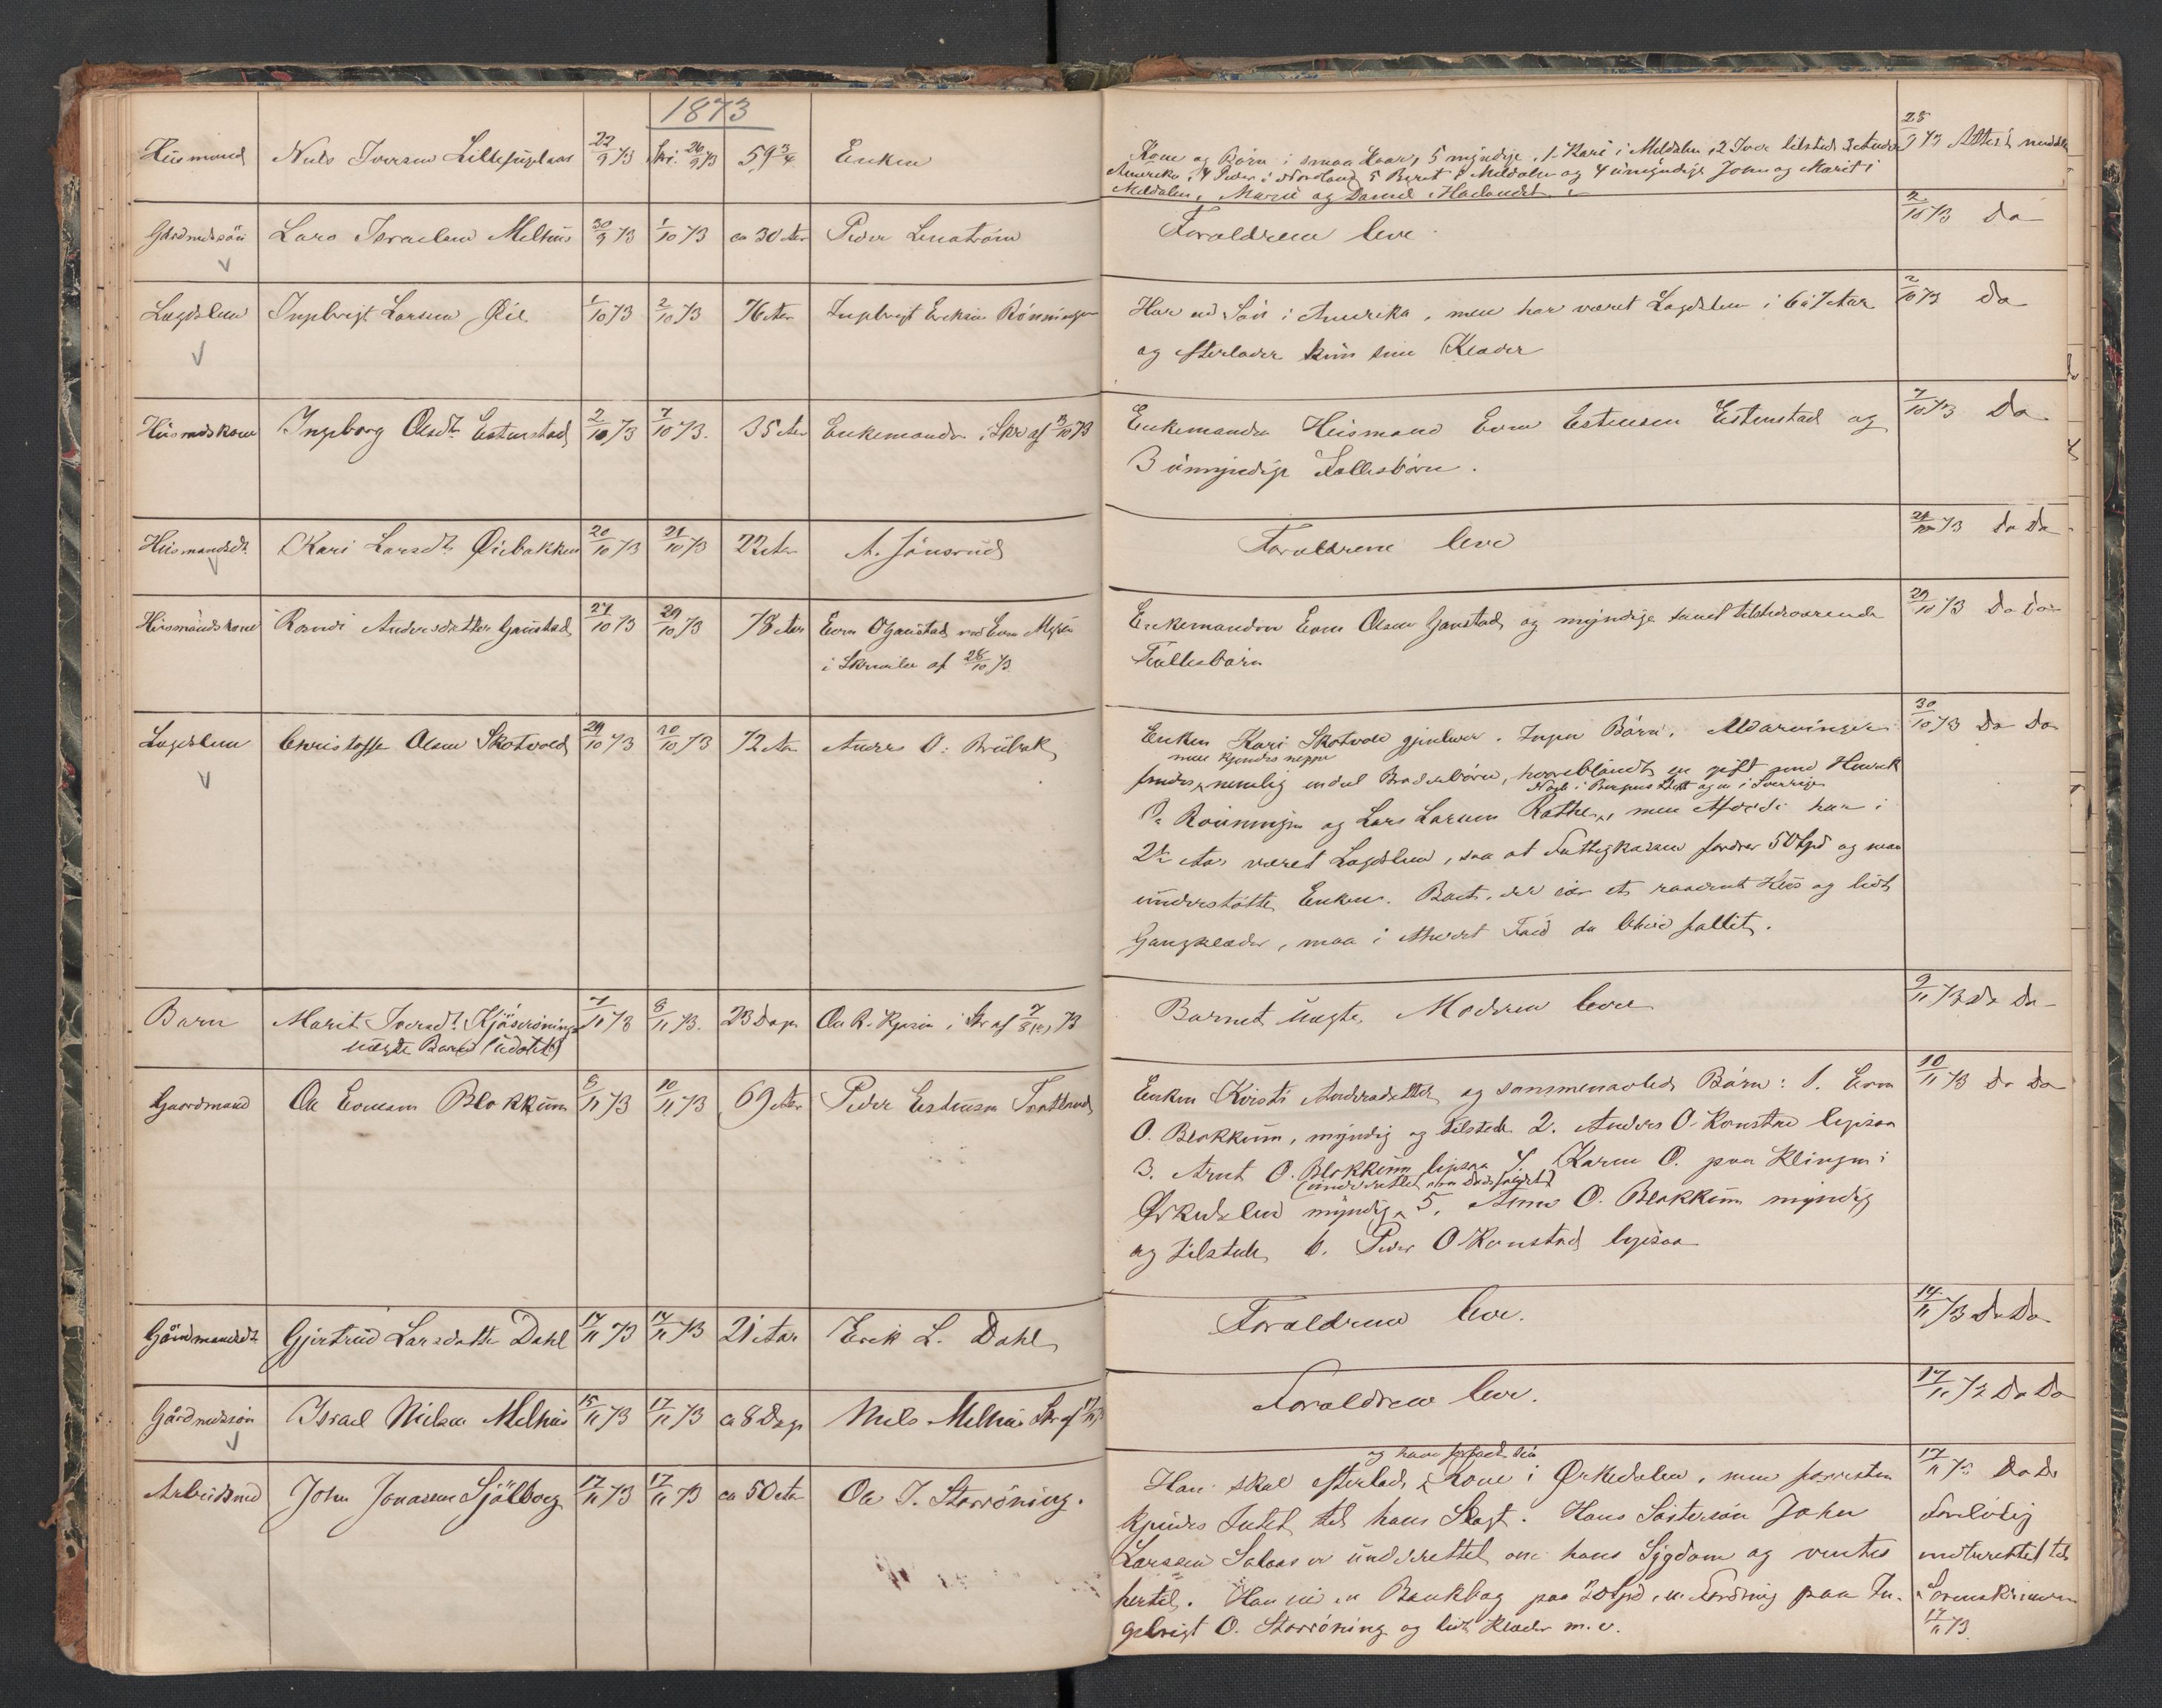 1873
Huusmand Nils Iversen Lillefuglaas 22/9 73 Skr. 26/9 73 59 3/4 Enken
Kone og Børn i smaa Kaar, 5 myndige 1 Kari i Meldalen, 2 Iver tilstede 3
Amerika, 4 Peder i Nordland, 5 Beret i Meldalen og 4 umyndige John og Marit i
Meldalen, Marit og Daniel i
28/9 73 Attest meddelt
Gårdmdssön Lars Israelsen Melhus 30/9 73 1/10 73 ca 30 Aar Peder
Forældrene leve
2/10 73 Do
Lægdslem Ingebrigt Larsen Øie 1/10 73 2/10 73 76 Aar Ingebrigt Eriksen Rönningen
Har en Sön i Amerika, men har været Lægdslem i 6 à 7 Aar
og efterlader kun sine Klæder
2/10 73 Do
Husmdskone Ingeborg Olsdt Estenstad 2/10 73 7/10 73. 35 Aar Enkemanden i Skr af 3/10 73
Enkemanden Huusmand Even Estensen Estenstad og
3 umyndige Fællesbörn.
7/10 73 Do
Husmandsdt. Kari Larsdt. Øiebakken 20/10 73 21/10 73 22 Aar A. Jönsrud
Forældrene leve
21/10 73 Do Do
Husmandskone Randi Andersdatter Gaustad 27/10 73 29/10 73 78 Aar Even O Gaustad ved Even
i Skrivelse af 28/10 73
Enkemanden Even Olsen Gaustad og myndige samt tilstedeværende
Fællesbörn
29/10 73 Do Do
Lægdslem Christoffer Olsen Skotvold 29/10 73 30/10 73 72 Aar Anders O: Brubak
Enken Kari Skotvold gjenlever. Ingen Börn. Udarvinger
men kjendes neppe
findes, nemlig endeel Broderbörn, hvoriblandt en gift med Henrik
O. Rönningen og Lars Larsen Rathe, men Afdøde har i
2de Aar været Lægdslem, saa at Fattigkassen fordrer 50 Spd og maa
understötte Enken. Boet, der eier et raadent Huus og lidt
Gangklæder, maa i ethvert Fald da blive fallit.
30/10 73 Do Do
Barn Marit Iversdt. 7/11 73 8/11 73. 23 Dage Ole R. i Skr af 73
uægte Barn
Barnet uægte, Moderen lever
9/11 73 Do Do
Gaardmand Ole Evensen Blokkum 8/11 73 10/11 73 69 Aar Peder Estensen
Enken Kirsti Andersdatter og sammenavlede Börn: 1. Even
O. Blokkum, myndig og tilstede 2. Anders O. Konstad ligesaa
3. Arnt O. Blokkum ligesaa 4. Karen O. paa Klingen i
(underrettet om Dødsfaldet)
Ørkedalen myndig, 5. Anne O. Blokkum myndig
og tilstede, 6. Peder O Konstad ligesaa
10/11 73 Do Do
Gårdmandsdt. Gjertrud Larsdatter Dahl 21 Aar Erik L. Dahl
Forældrene leve.
14/11 73 Do Do
Gårdmdssön Israel Nielsen Melhus 15/11 73 17/11 73 ca 8 Dage Nils Melhus Skr af
Forældrene leve.
17/11 73 Do Do
Arbeidsmd John Jonassen Sjölberg 17/11 73 17/11 73 ca 50 Aar Ole I. Storröning.
Han skal efterlade Kone i Ørkedalen, men forresten
kjendes Intet til hans Slægt. Hans Søstersön John
Larsen Solaas er underrettet om hans Sygdom og ventes
hertil. Han eier en Bankbog paa 20 Spd, en Fordring paa In-
gebrigt O. Storröning og lidt Klæder m. v.
17/11 73 Do Do
Foreløbig
underrettet til
Sorenskriveren
17/11 73.